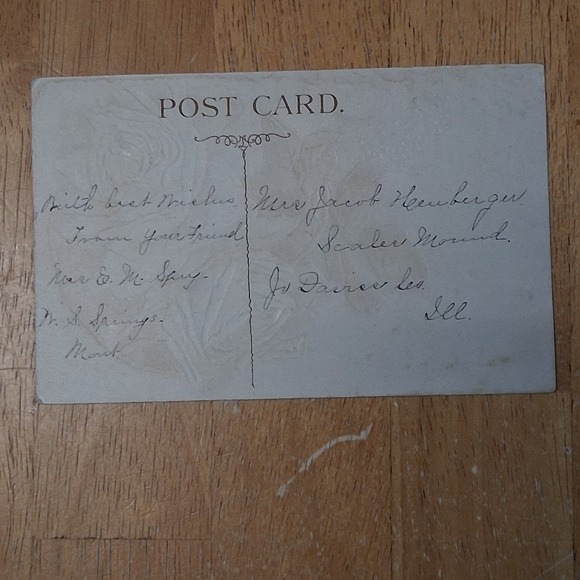 POST CARD.
With best Wishes
From Your Friend
Mrs E. M. Spry.
W. S. Springs.
Mont.
Mrs Jacob Heuberger
Scales Mound.
Jo Daviess Co.
Ill.